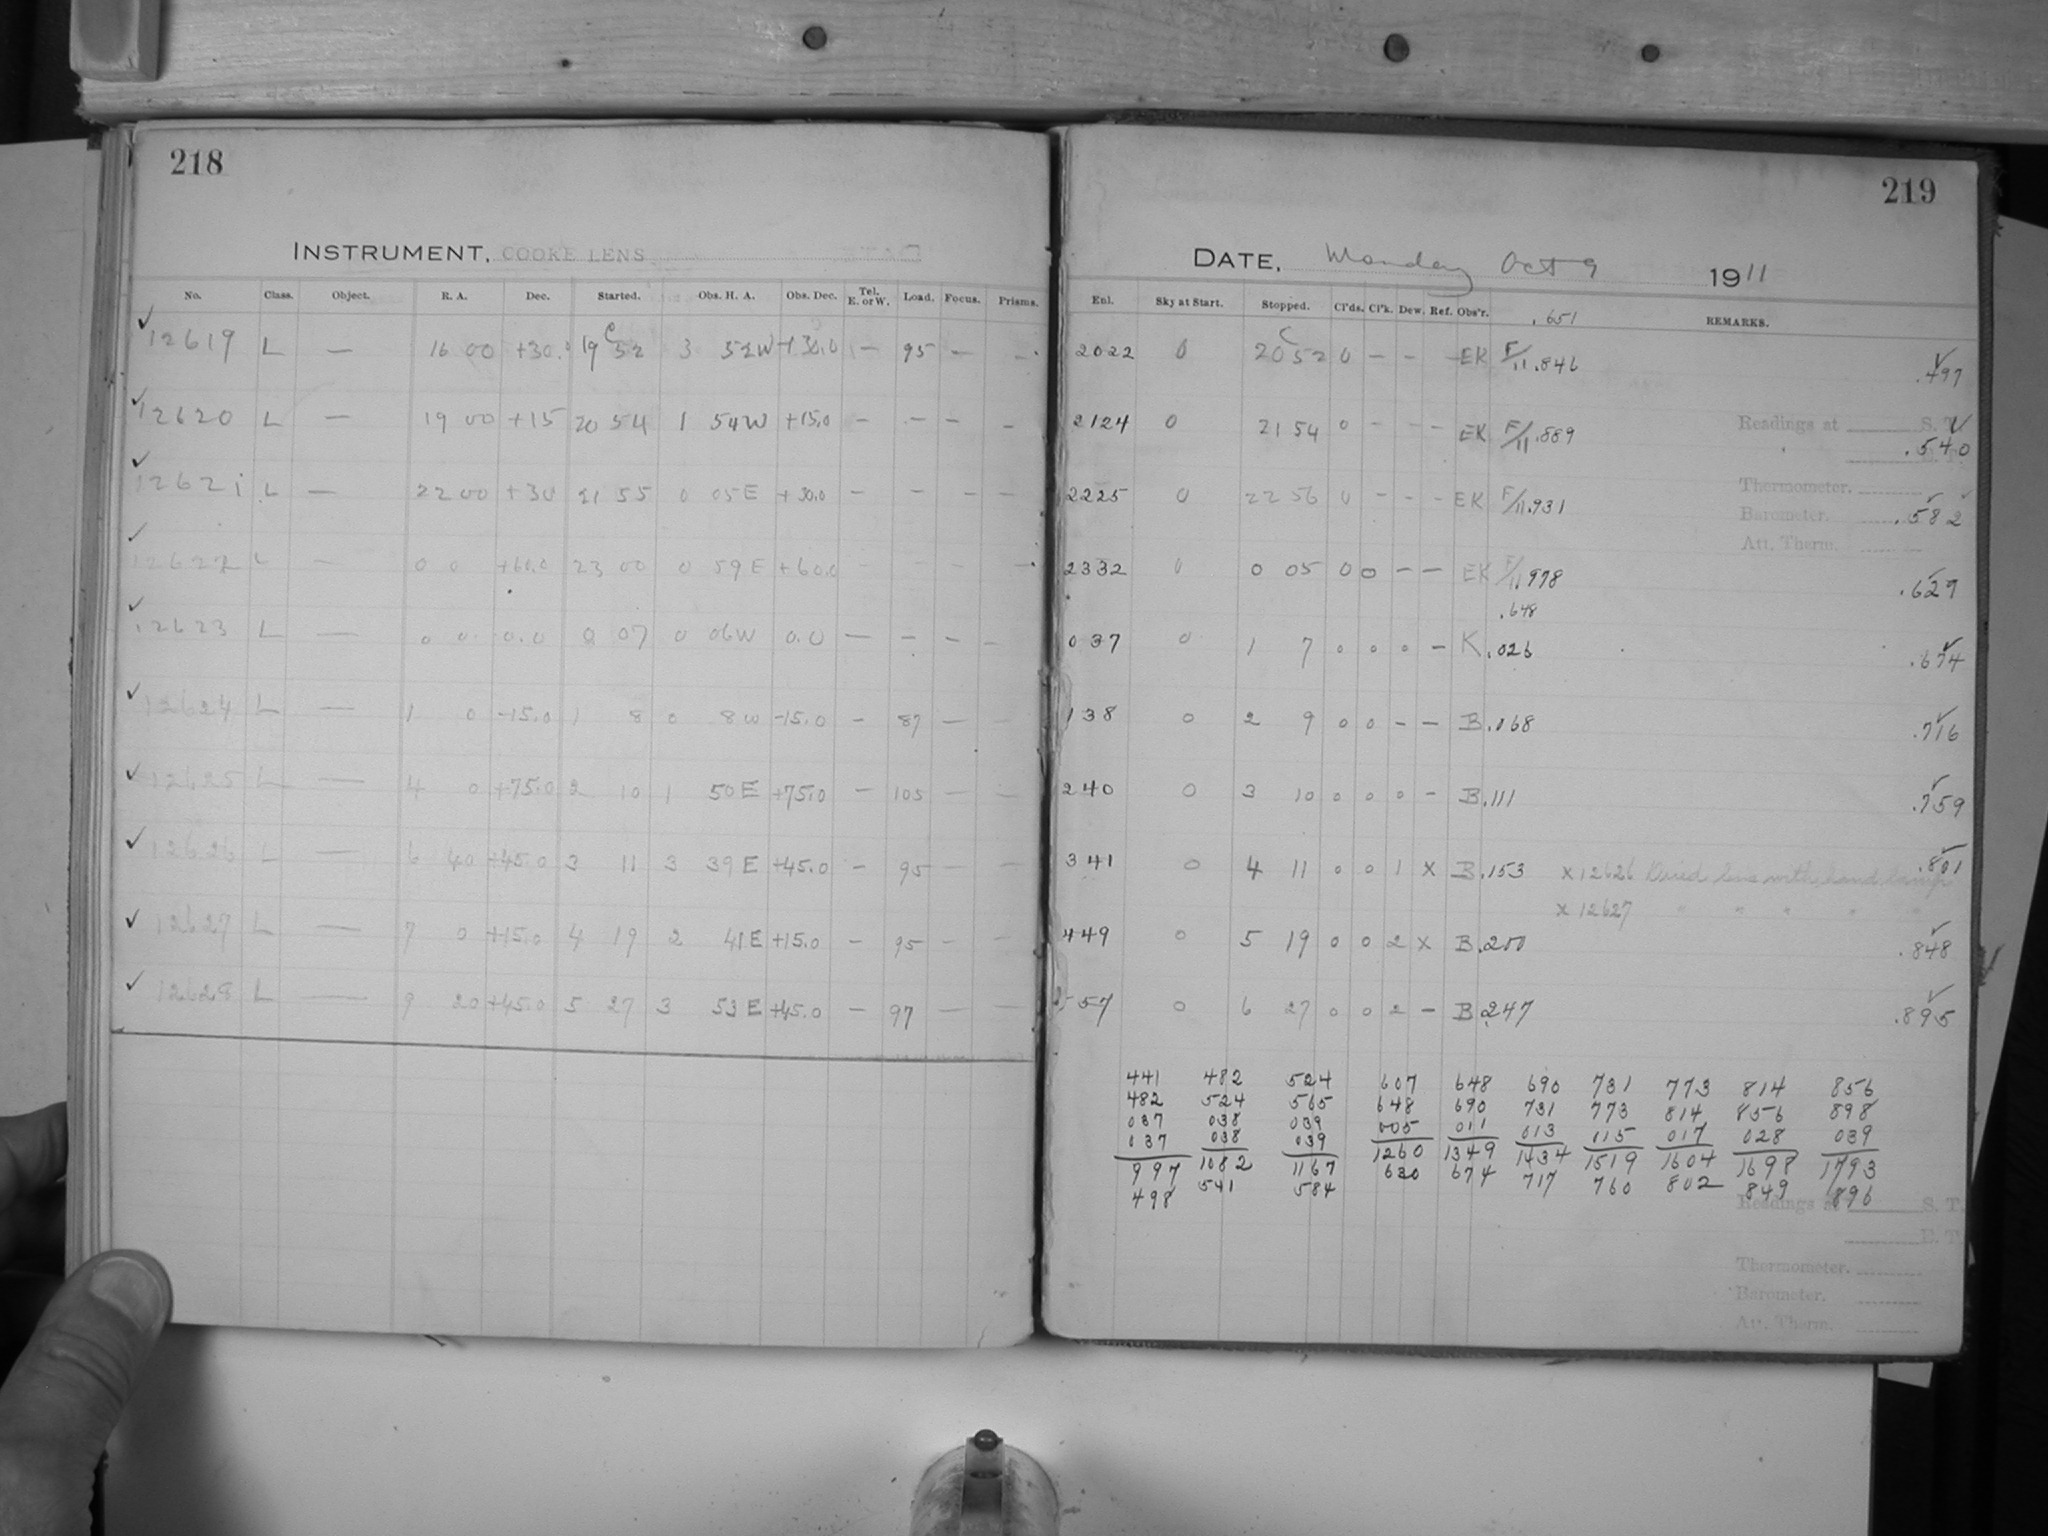 218
INSTRUMENT, COOKE LENS
No. Class. Object. R. A. Dec. Started. Obs. H. A. Obs. Dec. Tel. E. or W. Load. Focus. Prisms.
12619 L — 16 00 +30.0 19 52 3 52W +30.0 — 95 — —
12620 L — 19 00 +15 20 54 1 54W +15.0 — — — —
12621 L — 22 00 +30 21 55 0 05E +30.0 — — — —
12622 L — 0 0 +60.0 23 00 0 59E +60.0 — — — —
12623 L — 0 0 0.0 0 07 0 06W 0.0 — — — —
12624 L — 1 0 -15.0 1 8 0 8W -15.0 — 87 — —
12625 L — 4 0 +75.0 2 10 1 50E +75.0 — 105 — —
12626 L — 6 40 +45.0 3 11 3 39E +45.0 — 95 — —
12627 L — 7 0 +15.0 4 19 2 41E +15.0 — 95 — —
12628 L — 9 20 +45.0 5 27 3 53E +45.0 — 97 — —
219
DATE, Monday Oct 9 1911
Enl. Sky at Start. Stopped. Cl'ds. Cl'k. Dew. Ref. Obs'r. .651 REMARKS.
2022 0 20 52 0 — — EK F/11 .846 .497
2124 0 21 54 0 — — — EK F/11 .889 .540
Readings at S. T.
2225 0 22 56 0 — — — EK F/11 .931 .582
Thermometer.
Barometer.
Att. Therm.
2332 0 0 05 0 0 — — EK F/11 .978 .627
.648
037 0 1 7 0 0 0 — K .026 .674
138 0 2 9 0 0 — — B .068 .716
240 0 3 10 0 0 0 — B .111 .759
341 0 4 11 0 0 1 X B .153 X 12626 Dried lens with hand lamp .801
X 12627 " " " " "
449 0 5 19 0 0 2 X B .200 .848
557 0 6 27 0 0 2 — B .247 .895
441 482 524 607 648 690 731 773 814 856
482 524 565 648 690 731 773 814 856 898
037 038 039 005 011 013 115 017 028 039
037 038 039
997 1082 1167 1260 1349 1434 1519 1604 1698 1793
498 541 584 630 674 717 760 802 849 896
Readings at S. T.
E. T.
Thermometer.
Barometer.
Att. Therm.